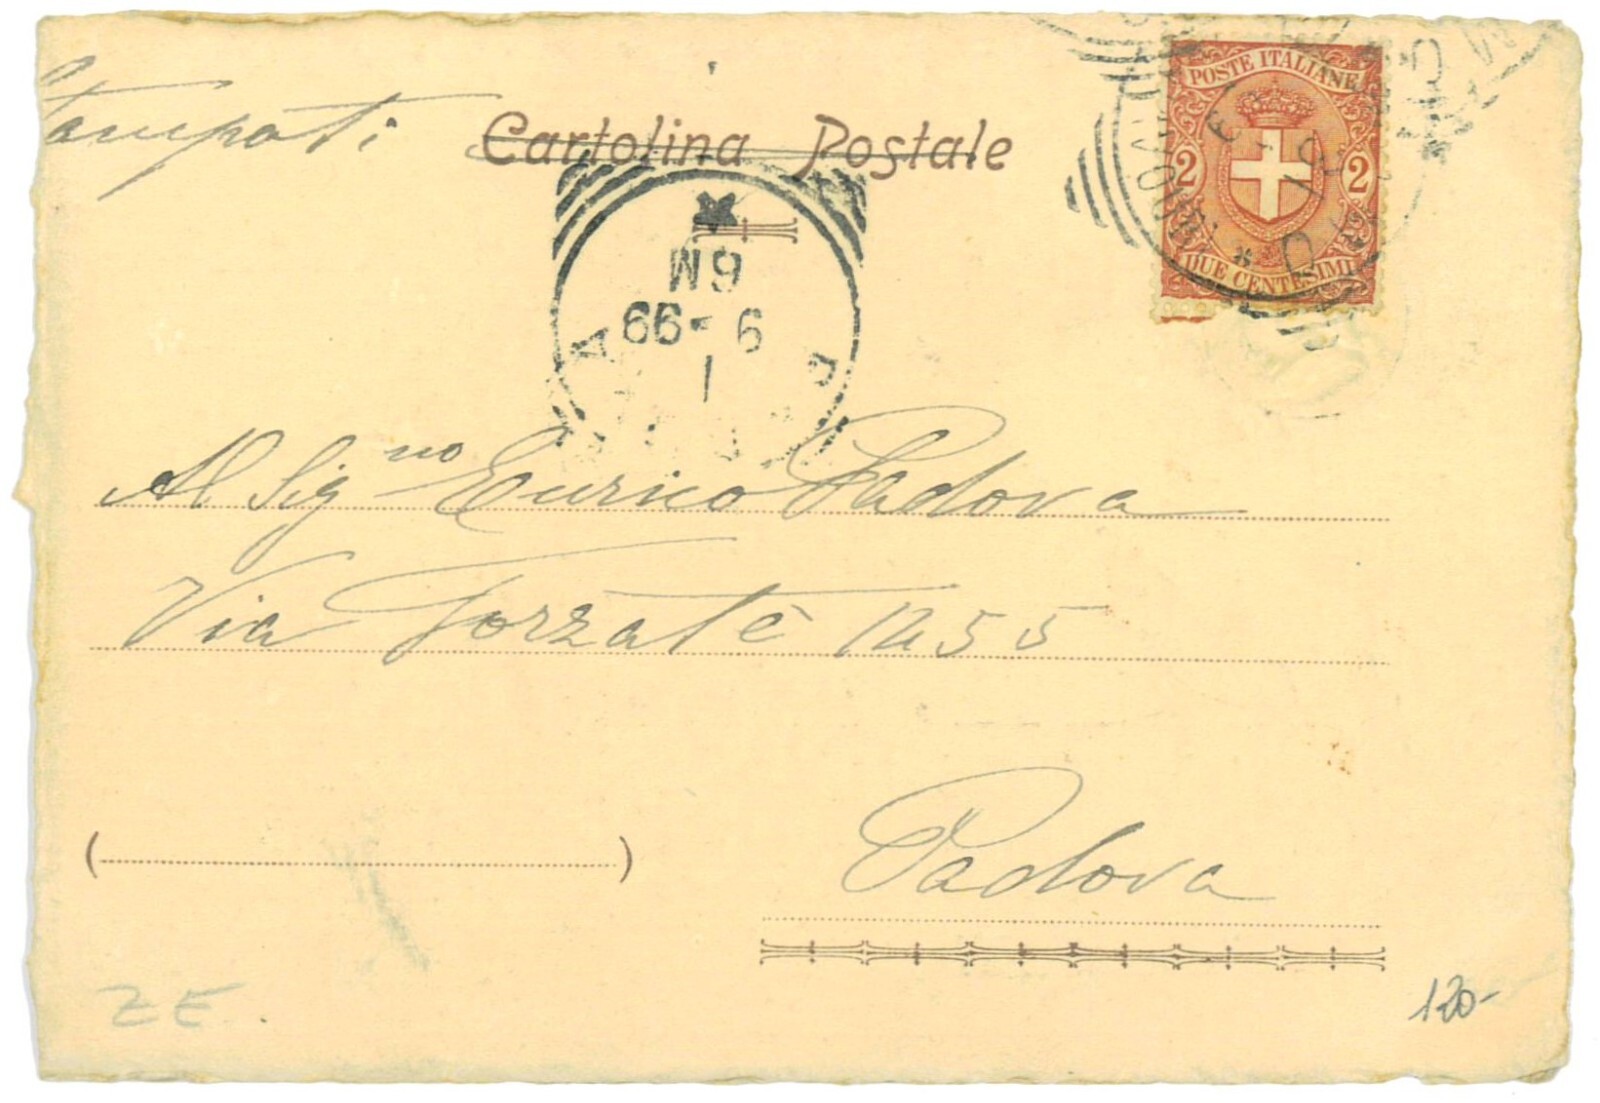 Stampati
Cartolina Postale
POSTE ITALIANE
2 2
DUE CENTESIMI
6M
9 - 99
1
Al Sig.no Enrico Padova
Via Torzatè 1455
Padova
ZE.
120-